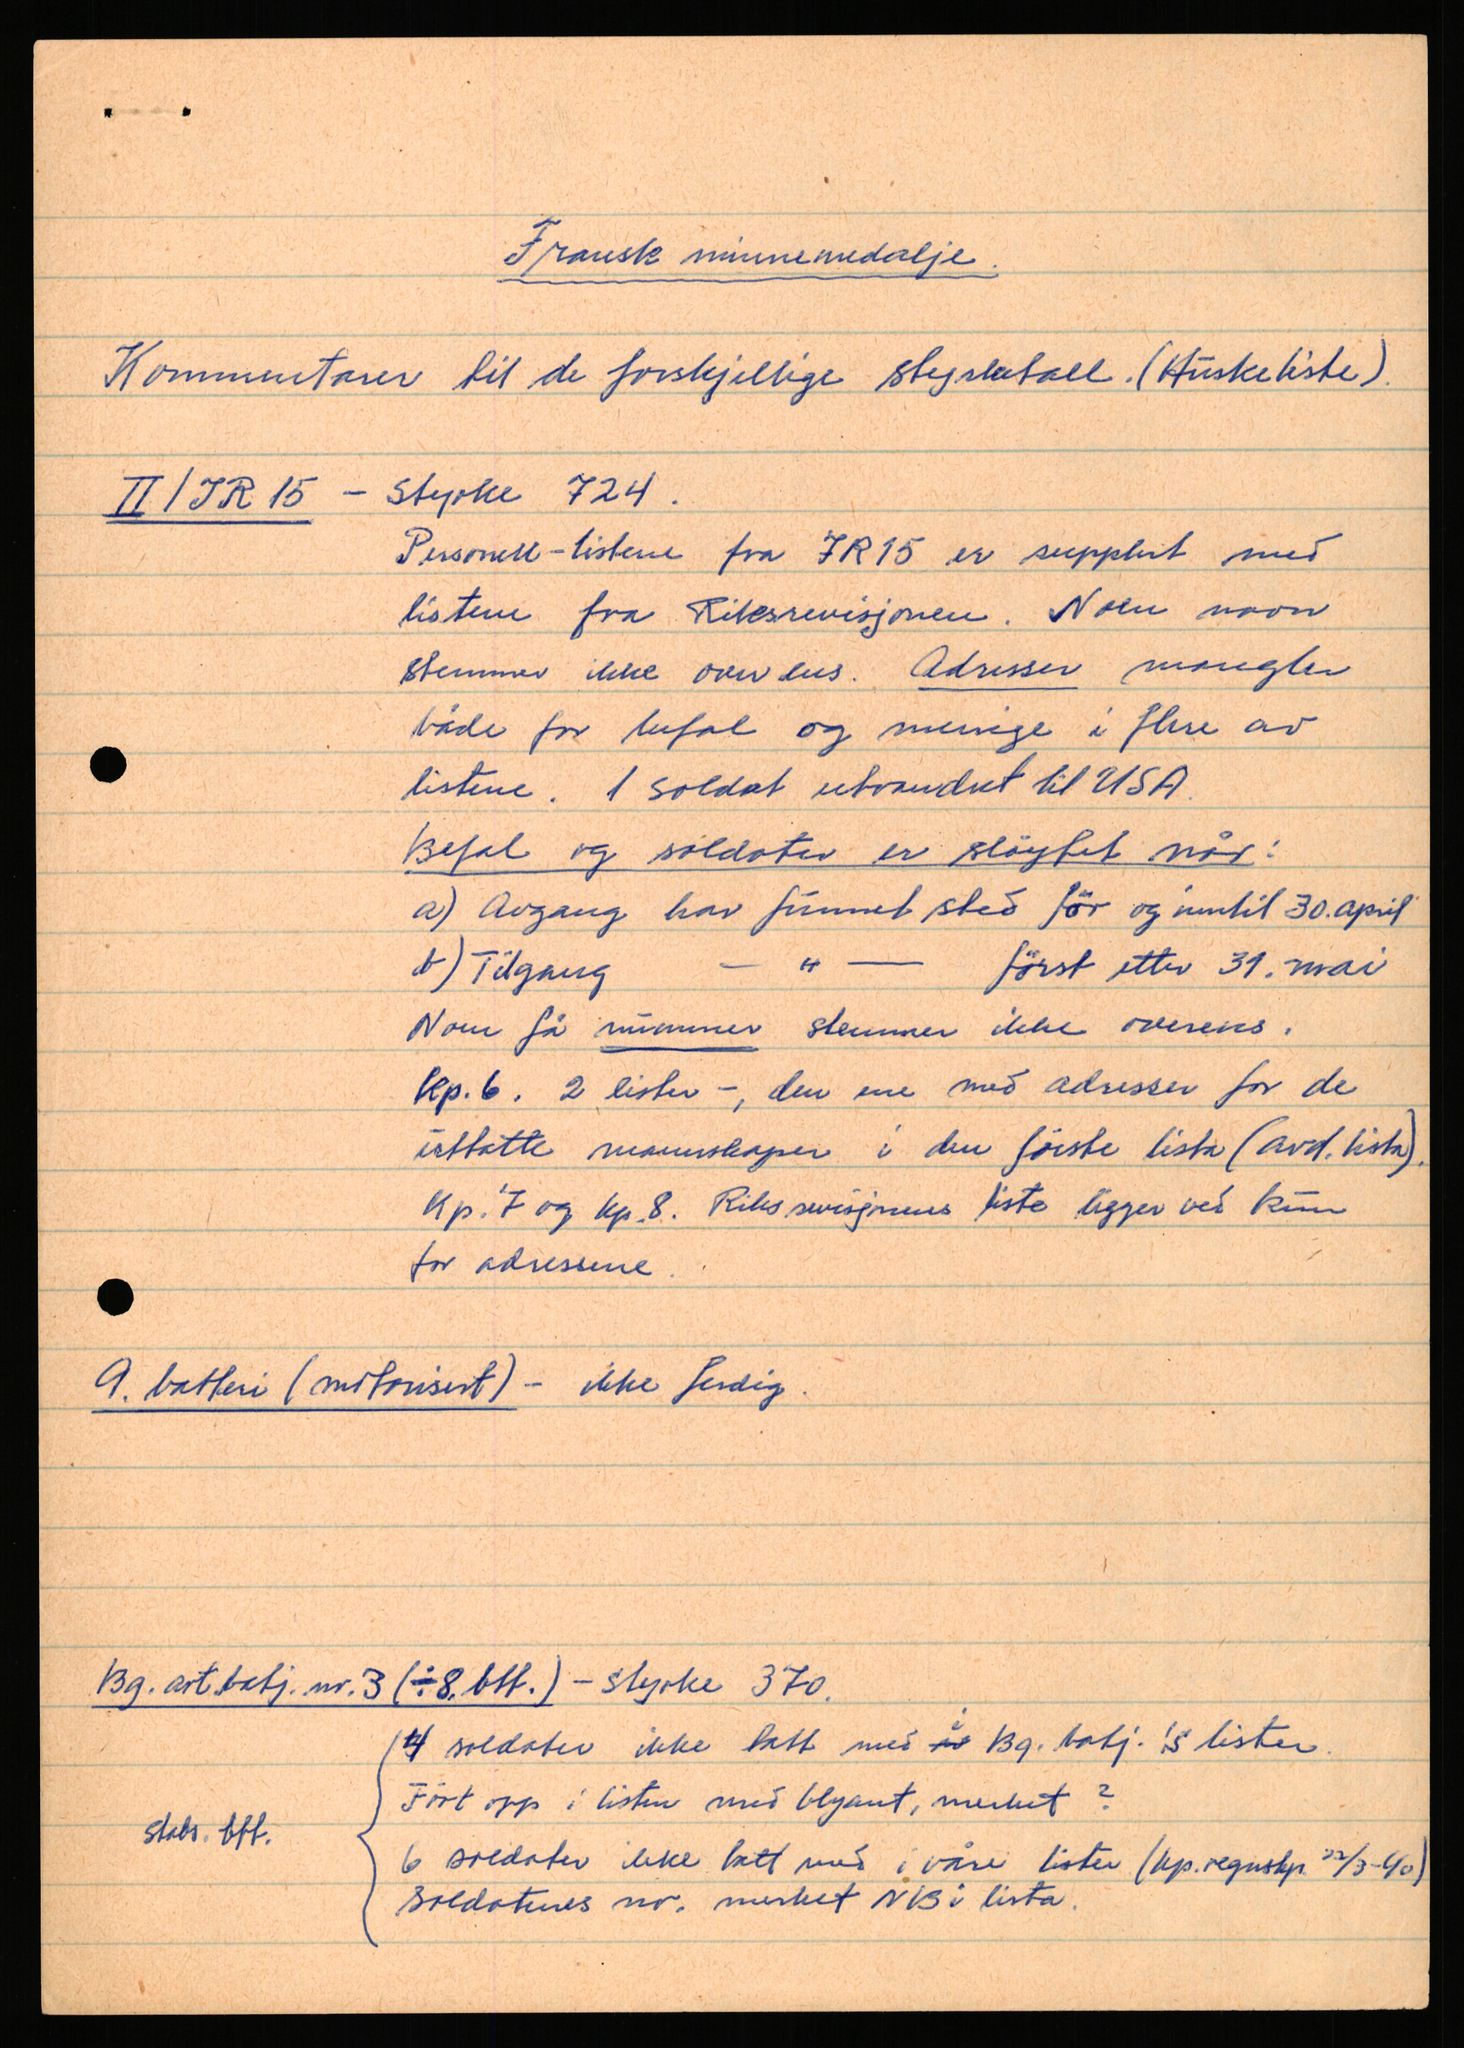 Fransk minnemedalje.
Kommentarer til de forskjellige styrketall. (Huskeliste).
II/IR 15 - Styrke 724.
Personell-listene fra IR15 er supplert med
listene fra Riksrevisjonen. Noen navn
stemmer ikke overens. Adresser mangler
både for befal og menige i flere av
listene. 1 soldat utvandret til USA.
Befal og soldater er sløyfet når:
a) Avgang har funnet sted før og inntil 30. april
b) Tilgang — " — først etter 31. mai
Noen få nummer stemmer ikke overens.
Kp. 6. 2 lister -, den ene med adresser for de
utsatte mannskaper i den første lista (avd. lista).
Kp. 7 og kp. 8. Riksrevisjonens liste ligger ved kun
for adressene.
9. batteri (motorisert) - ikke ferdig.
Bg. art. batj. nr. 3 (÷ 8. btt.) - styrke 370.
4 soldater ikke tatt med i Bg. batj.'s lister.
Ført opp i listen med blyant, merket ?
stabs. btt.
6 soldater ikke tatt med i våre lister (kp. regnskp. 22/3-40)
Soldatenes nr. merket NB i lista.